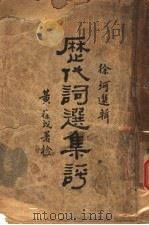 徐珂選輯
歷代詞選集評
黃葆戉署檢